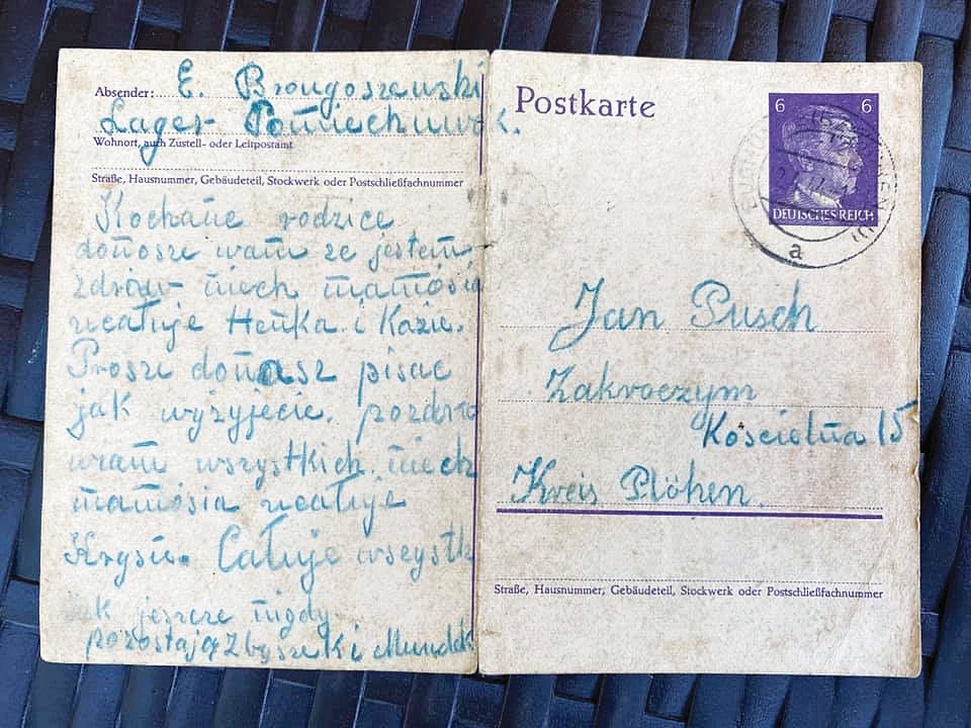 Absender: E. Brongoszewski
Lager Pomiechuwek.
Wohnort, auch Zustell- oder Leitpostamt
Straße, Hausnummer, Gebäudeteil, Stockwerk oder Postschließfachnummer
Kochane rodzice
donosze wam ze jestem
zdrów niech mamósia
ucałuje Heńka i Kazie.
Prosze donas pisac
jak wyżyjecie. pozdro
wiam wszystkich. niech
mamósia ucałuje
Krysie. Całuje wszystk
jak jeszcze nigdy
pozostają Zbyszek i Mundek
Postkarte
6 6
DEUTSCHES REICH
a
Jan Pusch
Zakroczym
Kościelna 15
Kreis Plöhen.
Straße, Hausnummer, Gebäudeteil, Stockwerk oder Postschließfachnummer